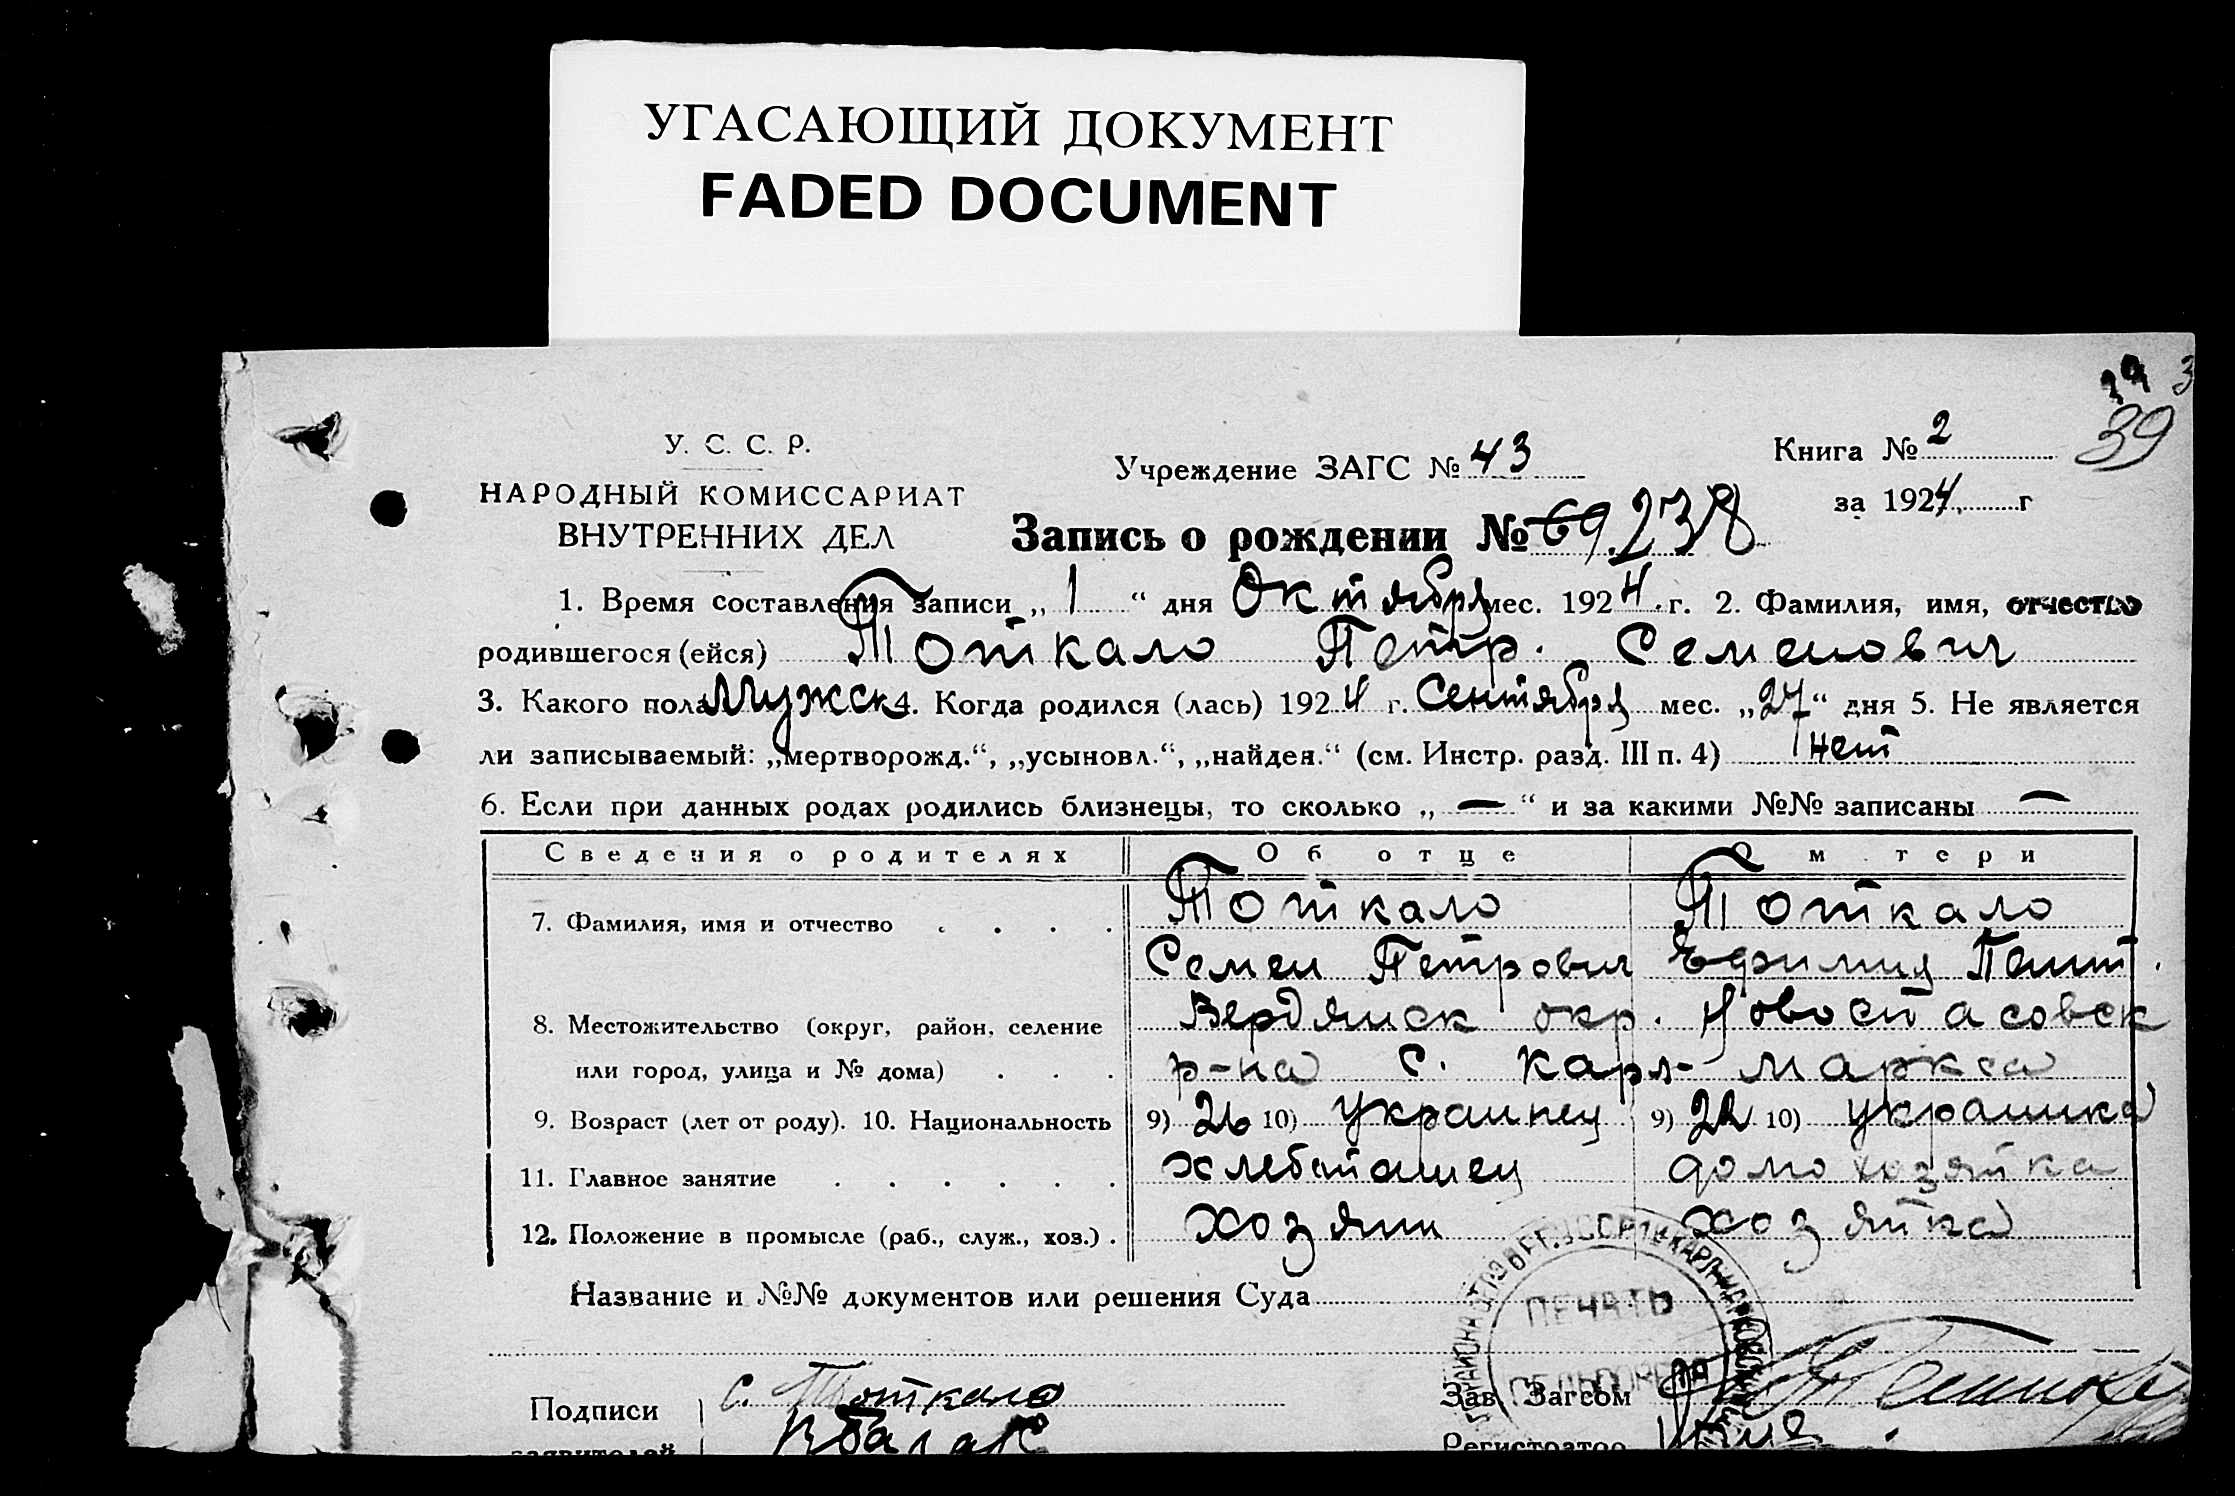 УГАСАЮЩИЙ ДОКУМЕНТ
FADED DOCUMENT
39
У. С. С. Р.
НАРОДНЫЙ КОМИССАРИАТ
ВНУТРЕННИХ ДЕЛ
Учреждение ЗАГС № 43
Книга № 2
за 1924 г
Запись о рождении № 69 238
1. Время составления записи „ 1 “ дня Октября мес. 1924 г. 2. Фамилия, имя, отчество
родившегося (ейся) Тоткало Петр. Семенович
3. Какого пола Мужск 4. Когда родился (лась) 1924 г. Сентября мес. „27“ дня 5. Не является
ли записываемый: „мертворожд.“, „усыновл.“, „найден.“ (см. Инстр. разд. III п. 4) нет
6. Если при данных родах родились близнецы, то сколько „ — “ и за какими №№ записаны —
Сведения о родителях Об отце О м тери
7. Фамилия, имя и отчество Тоткало Тоткало
Семен Петрович Ефимия
8. Местожительство (округ, район, селение Бердянск окр. Новоспасовск
или город, улица и № дома) р-на С. Карл-Маркса
9. Возраст (лет от роду). 10. Национальность 9) 26 10) украинец 9) 22 10) украинка
11. Главное занятие хлебопашец домохозяйка
12. Положение в промысле (раб., служ., хоз.) хозяин хозяйка
Название и №№ документов или решения Суда
ПЕЧАТЬ
Подписи С. Тоткало
Зав. Загсом
заявителей
Регистратор